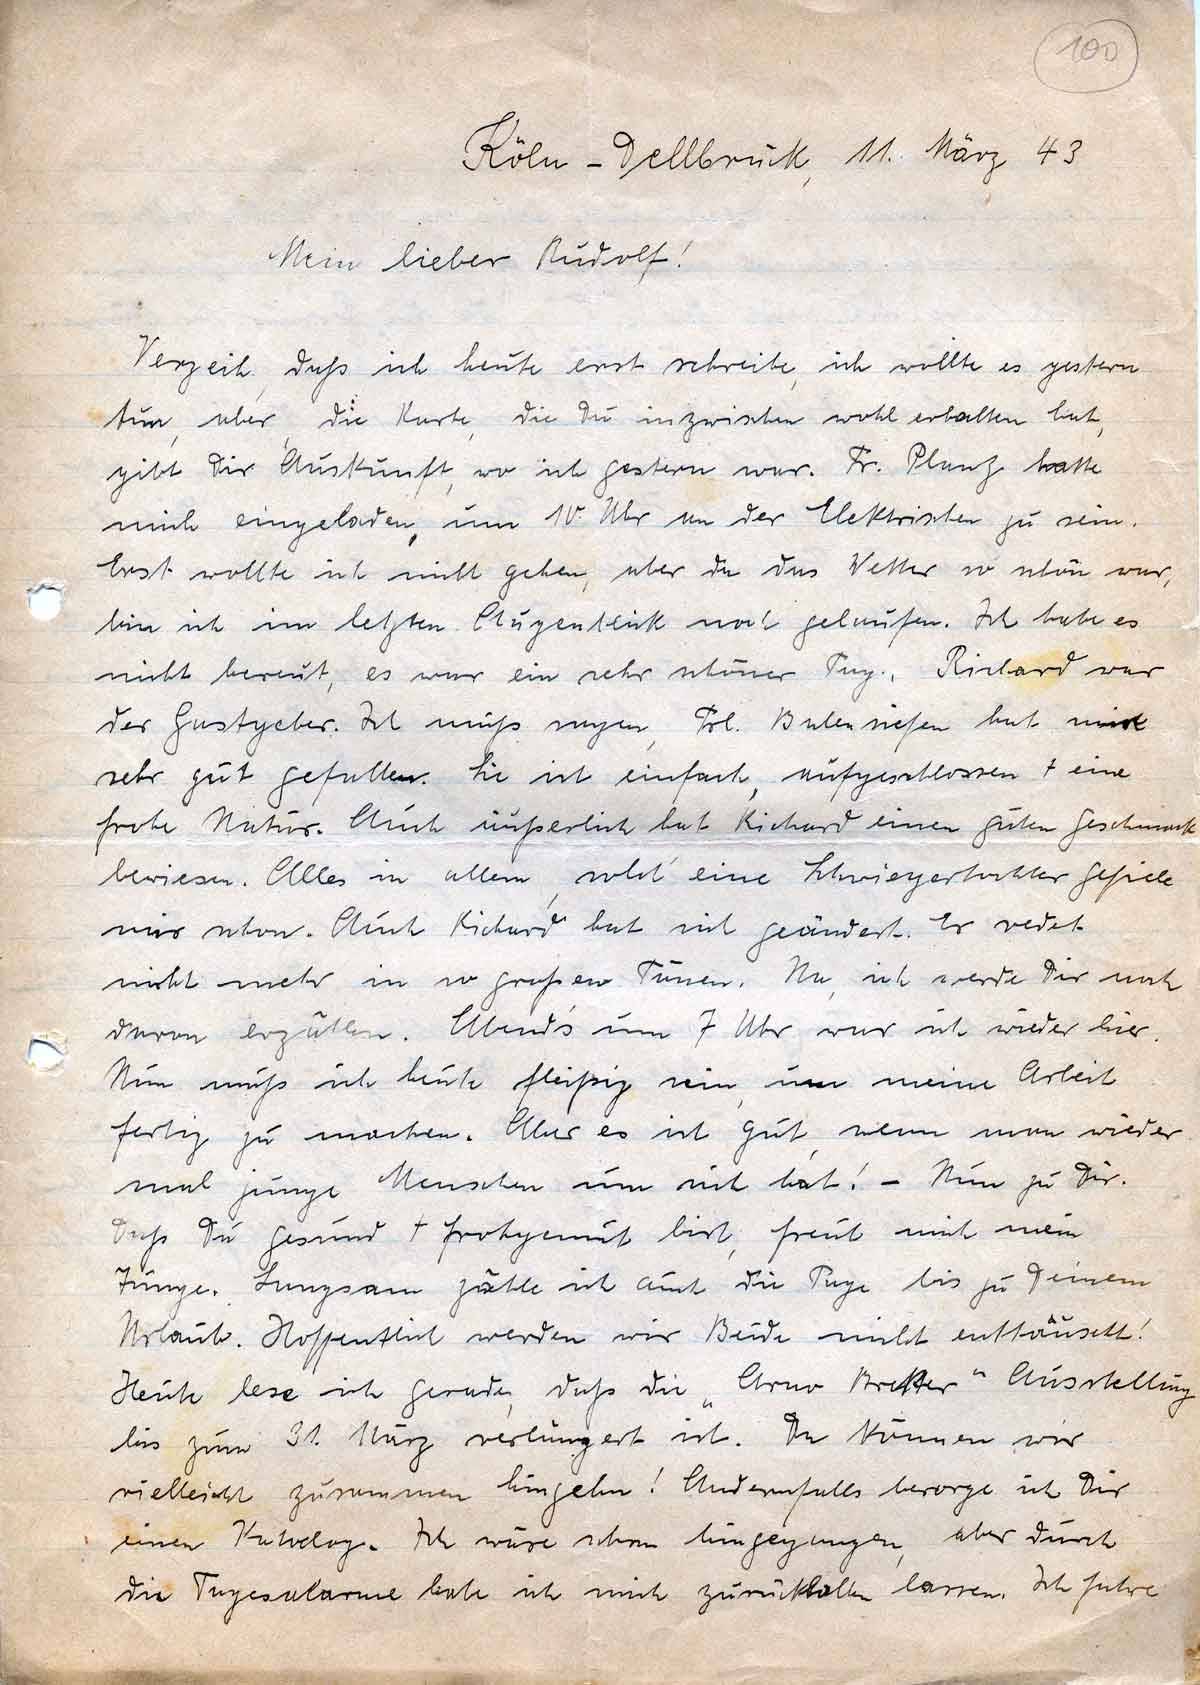 100
Köln-Dellbrück, 11. März 43
Mein lieber Rudolf!
Verzeih, daß ich heute erst schreibe, ich wollte es gestern
tun, aber, die Karte, die Du inzwischen wohl erhalten hat,
gibt Dir Auskunft, wo ich gestern war. Fr. Planz hatte
mich eingeladen, um 10 Uhr an der Elektrischen zu sein.
Erst wollte ich nicht gehen, aber da das Wetter so schön war,
bin ich im letzten Augenblick noch gelaufen. Ich habe es
nicht bereut, es war ein sehr schöner Tag. Richard war
der Gastgeber. Ich muß sagen, Frl. hat mir
sehr gut gefallen. Sie ist einfach, aufgeschlossen + eine
frohe Natur. Auch äußerlich hat Richard einen guten Geschmack
bewiesen. Alles in allem, solch' eine Schwiegertochter gefiele
mir schon. Auch Richard hat sich geändert. Er redet
nicht mehr in so großen Tönen. Na, ich werde Dir noch
davon erzählen. Abend's um 7 Uhr war ich wieder hier.
Nun muß ich heute fleißig sein, um meine Arbeit
fertig zu machen. Aber es ist gut, wenn man wieder
mal junge Menschen um sich hat! - Nun zu Dir.
Daß Du gesund + frohgemut bist, freut mich mein
Junge. Langsam zähle ich auch die Tage bis zu Deinem
Urlaub. Hoffentlich werden wir Beide nicht enttäuscht!
Heute lese ich gerade, daß die „Arno Breker" Ausstellung
bis zum 31. März verlängert ist. Da können wir
vielleicht zusammen hingehn! Andernfalls besorge ich Dir
einen Katalog. Ich wäre schon hingegangen, aber durch
die Tagesalarme habe ich mich zurückhalten lassen. Ich fahre